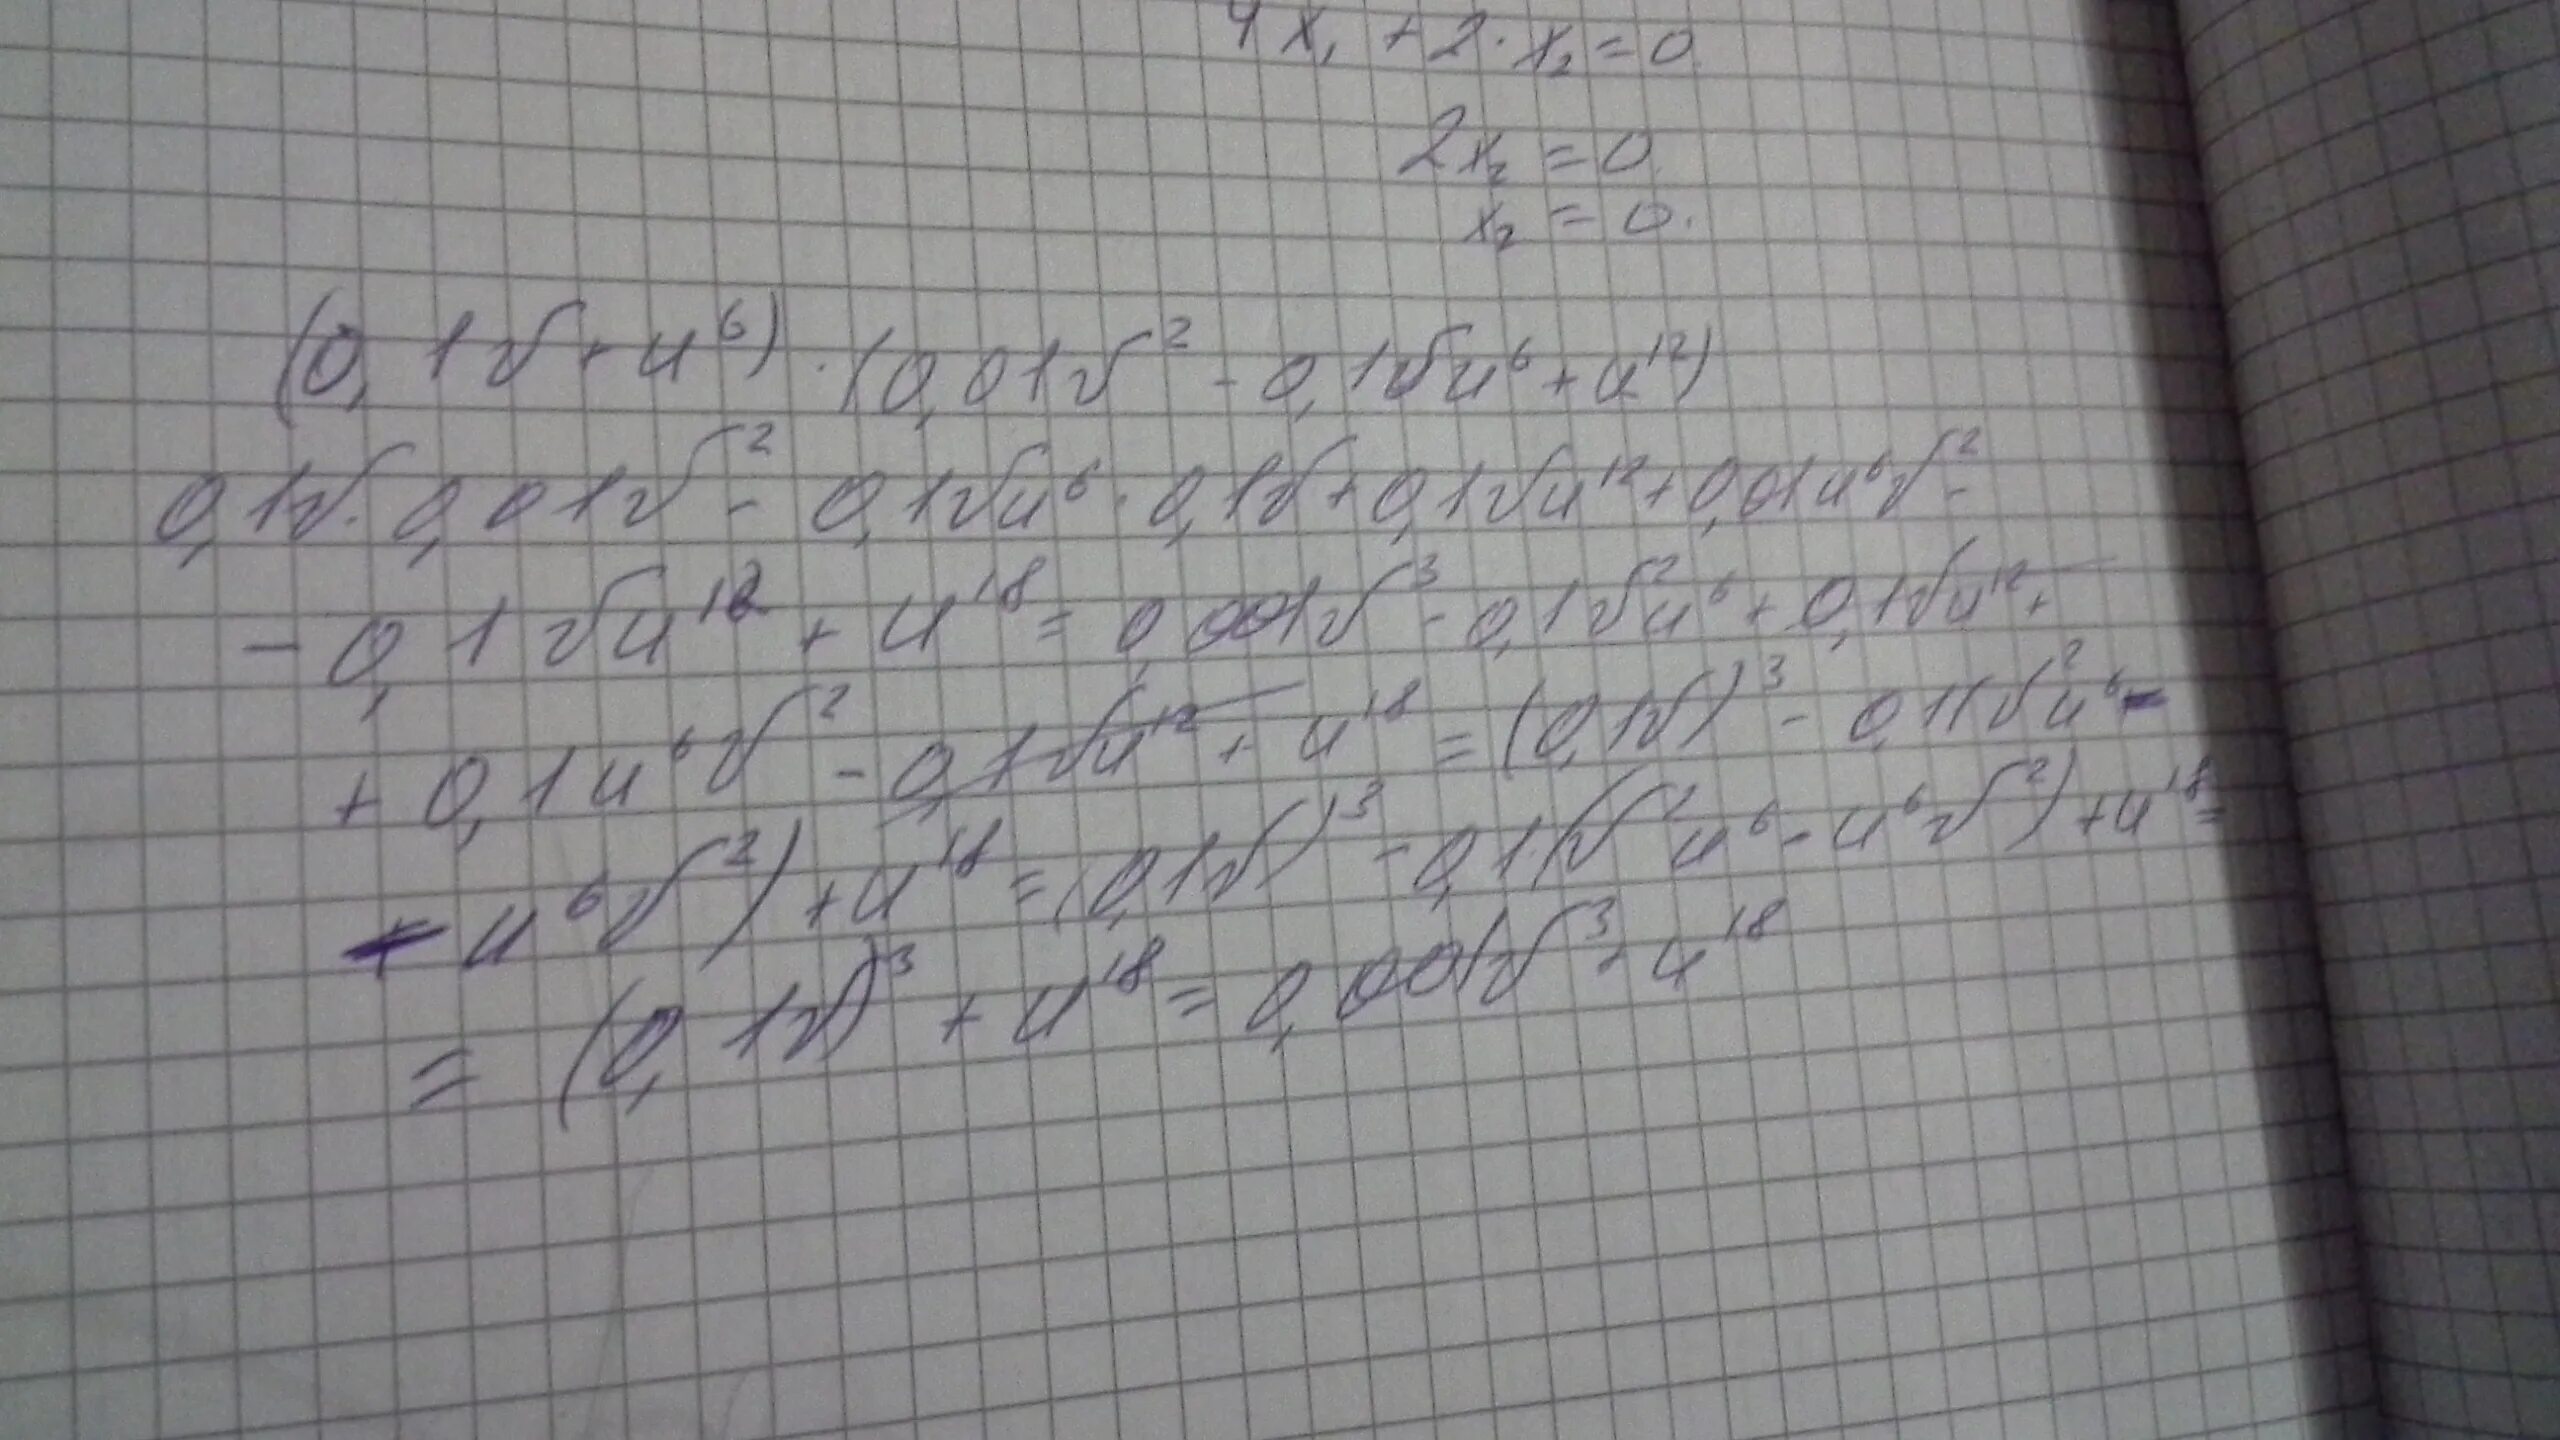 4x₁ + 2·x₂ = 0
2x₂ = 0.
x₂ = 0.
(0,1v + u⁶)·(0,01v² - 0,1vu⁶ + u¹²)
0,1v·0,01v² - 0,1vu⁶·0,1v + 0,1vu¹² + 0,01u⁶v² -
- 0,1vu¹² + u¹⁸ = 0,001v³ - 0,1v²u⁶ + 0,1vu¹² +
+ 0,1u⁶v² - 0,1vu¹² + u¹⁸ = (0,1v)³ - 0,1(v²u⁶ -
- u⁶v²) + u¹⁸ = (0,1v)³ - 0,1·(v²u⁶ - u⁶v²) + u¹⁸ =
= (0,1v)³ + u¹⁸ = 0,001v³ + u¹⁸